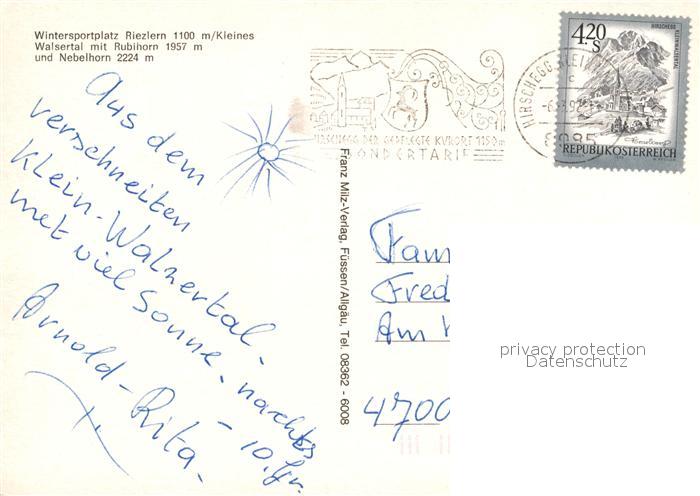 Wintersportplatz Riezlern 1100 m/Kleines
Walsertal mit Rubihorn 1957 m
und Nebelhorn 2224 m
Aus dem
verschneiten
Klein-Walzertal-
met viel Sonne, nachts
- 10. Gr.
Arnold - Rita.
Franz Milz-Verlag, Füssen/Allgäu, Tel. 08362 - 6008
HIRSCHEGG DER GEPFLEGTE KURORT 1150 m
SONDERTARIF
HIRSCHEGG, KLEIN
4.20 S
HIRSCHEGG
KLEINWALSERTAL
REPUBLIK ÖSTERREICH
Fam
Fred
Am
4700
privacy protection
Datenschutz